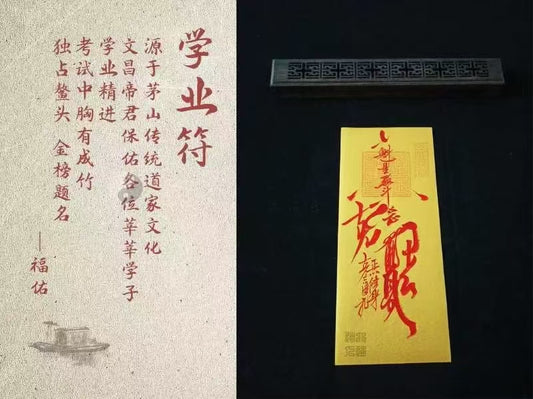 学业符
源于茅山传统道家文化
文昌帝君保佑各位莘莘学子
学业精进
考试中胸有成竹
独占鳌头 金榜题名
——福佑
魁星